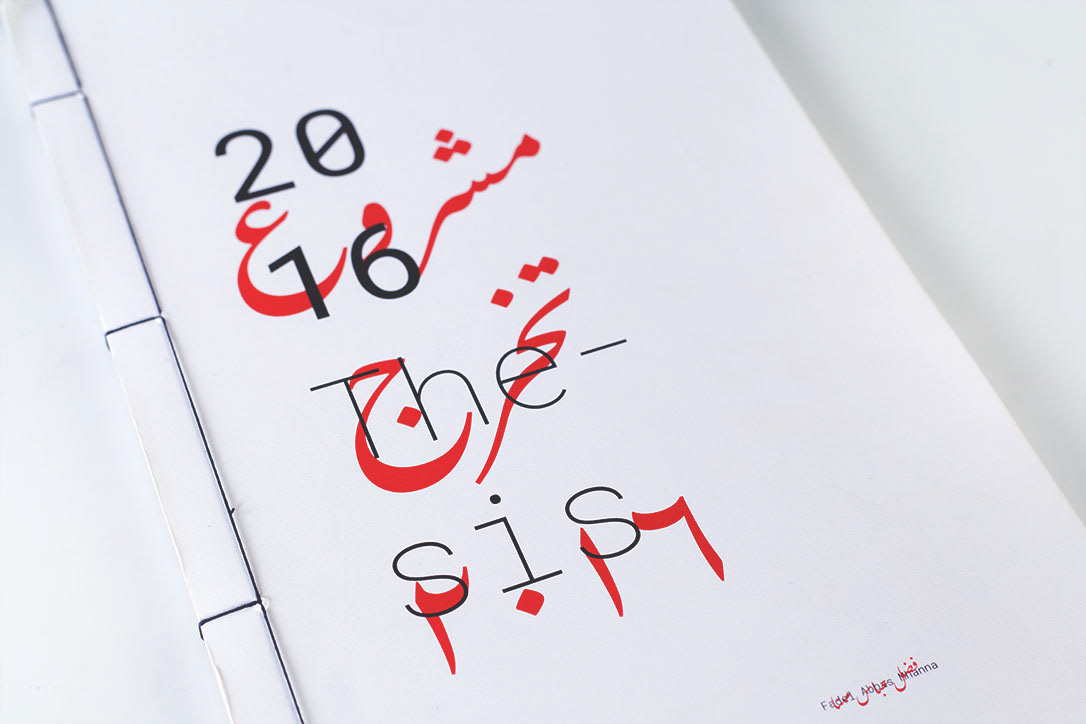 20
مشروع
16
تخرج
The-
sis
٢٠١٦
فضل عباس مهنا
Fadel Abbas Mhanna